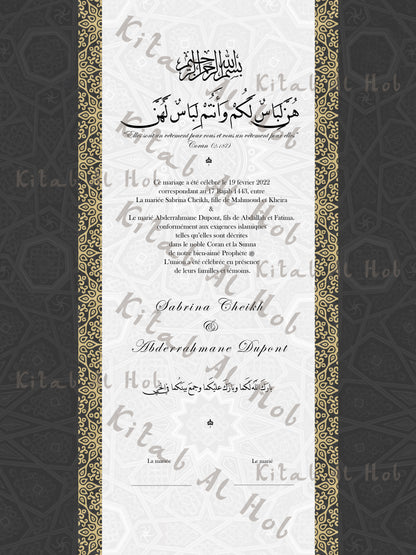 بسم الله الرحمن الرحيم
هُنَّ لِبَاسٌ لَكُمْ وَأَنْتُمْ لِبَاسٌ لَهُنَّ
"Elles sont un vêtement pour vous et vous un vêtement pour elles"
Coran (2:187)
Le mariage a été célébré le 19 février 2022
correspondant au 17 Rajab 1443, entre
La mariée Sabrina Cheikh, fille de Mahmoud et Kheira
&
Le marié Abderrahmane Dupont, fils de Abdallah et Fatima.
conformément aux exigences islamiques
telles qu'elles sont décrites
dans le noble Coran et la Sunna
de notre bien-aimé Prophète ﷺ
L'union a été célébrée en présence
de leurs familles et témoins.
Sabrina Cheikh
&
Abderrahmane Dupont
بارك الله لكما وبارك عليكما وجمع بينكما في خير
La mariée
Le marié
Kitab Al Hob
Kitab Al Hob
Kitab Al Hob
Kitab Al Hob
Kitab Al Hob
Kitab Al Hob